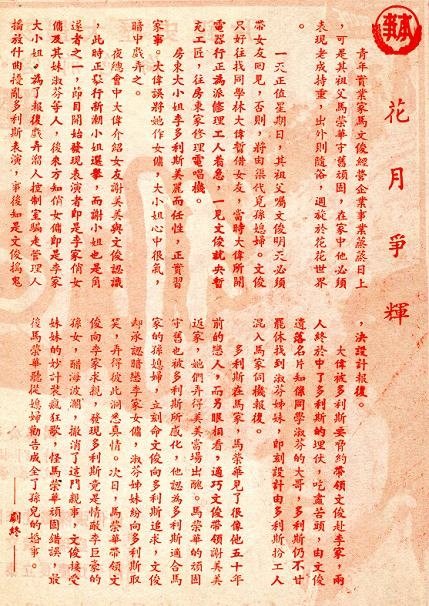 本事
花月爭輝
青年實業家馬文俊經營企業事業蒸蒸日上
，可是其祖父馬榮華守舊頑固，在家中他必須
表現老成持重，出外則隨俗，週旋於花花世界
。
一天正值星期日，其祖父囑文俊明天必須
帶女友回見，否則，將由柒代覓孫媳婦。文俊
只好往找同學林大偉暫借女友，當時大偉所開
電器行正為派修理工人着急，一見文俊就央暫
充工匠，往房東家修理電唱機。
房東大小姐李多利斯美麗而任性，正實習
家事。大偉誤將她作女傭，大小姐心中很氣，
暗中戲弄之。
夜總會中大偉介紹女友謝美美與文俊認識
，此時正舉行新潮小姐選舉，而謝小姐也是角
逐者之一，節目開始發現表演者即是李家俏女
傭及其妹淑芬等人，後來方知俏女傭即是李家
大小姐。為了報復戲弄潛入控制室騙走管理人
播放什曲擾亂多利斯表演，事後知是文俊搞鬼
，決設計報復。
大偉被多利斯要脅約帶領文俊赴李家，兩
人終於中了多利斯的埋伏，吃盡苦頭，由文俊
遺落名片知係同學淑芬的大哥，多利斯仍不甘
罷休找到淑芬姊妹，即刻設計由多利斯扮工人
混入馬家伺機報復。
多利斯在馬家，馬榮華見了很像他五十年
前的戀人，而另眼相看，適巧文俊帶領謝美美
返家，她們弄得美美當場出醜。馬榮華的頑固
守舊也被多利斯所感化，他認為多利斯適合馬
家的孫媳婦，立刻命文俊向多利斯追求，文俊
却承認暗戀李家女傭，淑芬姊妹紛向多利斯取
笑，弄得彼此洞悉真情。次日，馬榮華帶領文
俊向李家求親，發現多利斯竟是情敵李巨豪的
孫女，醋海波瀾，撤消了這門親事，文俊接受
妹妹的妙計裝瘋狂歌，怪馬榮華頑固錯誤，最
後馬榮華聽從媳婦勸告成全了孫兒的婚事。
——劇終——